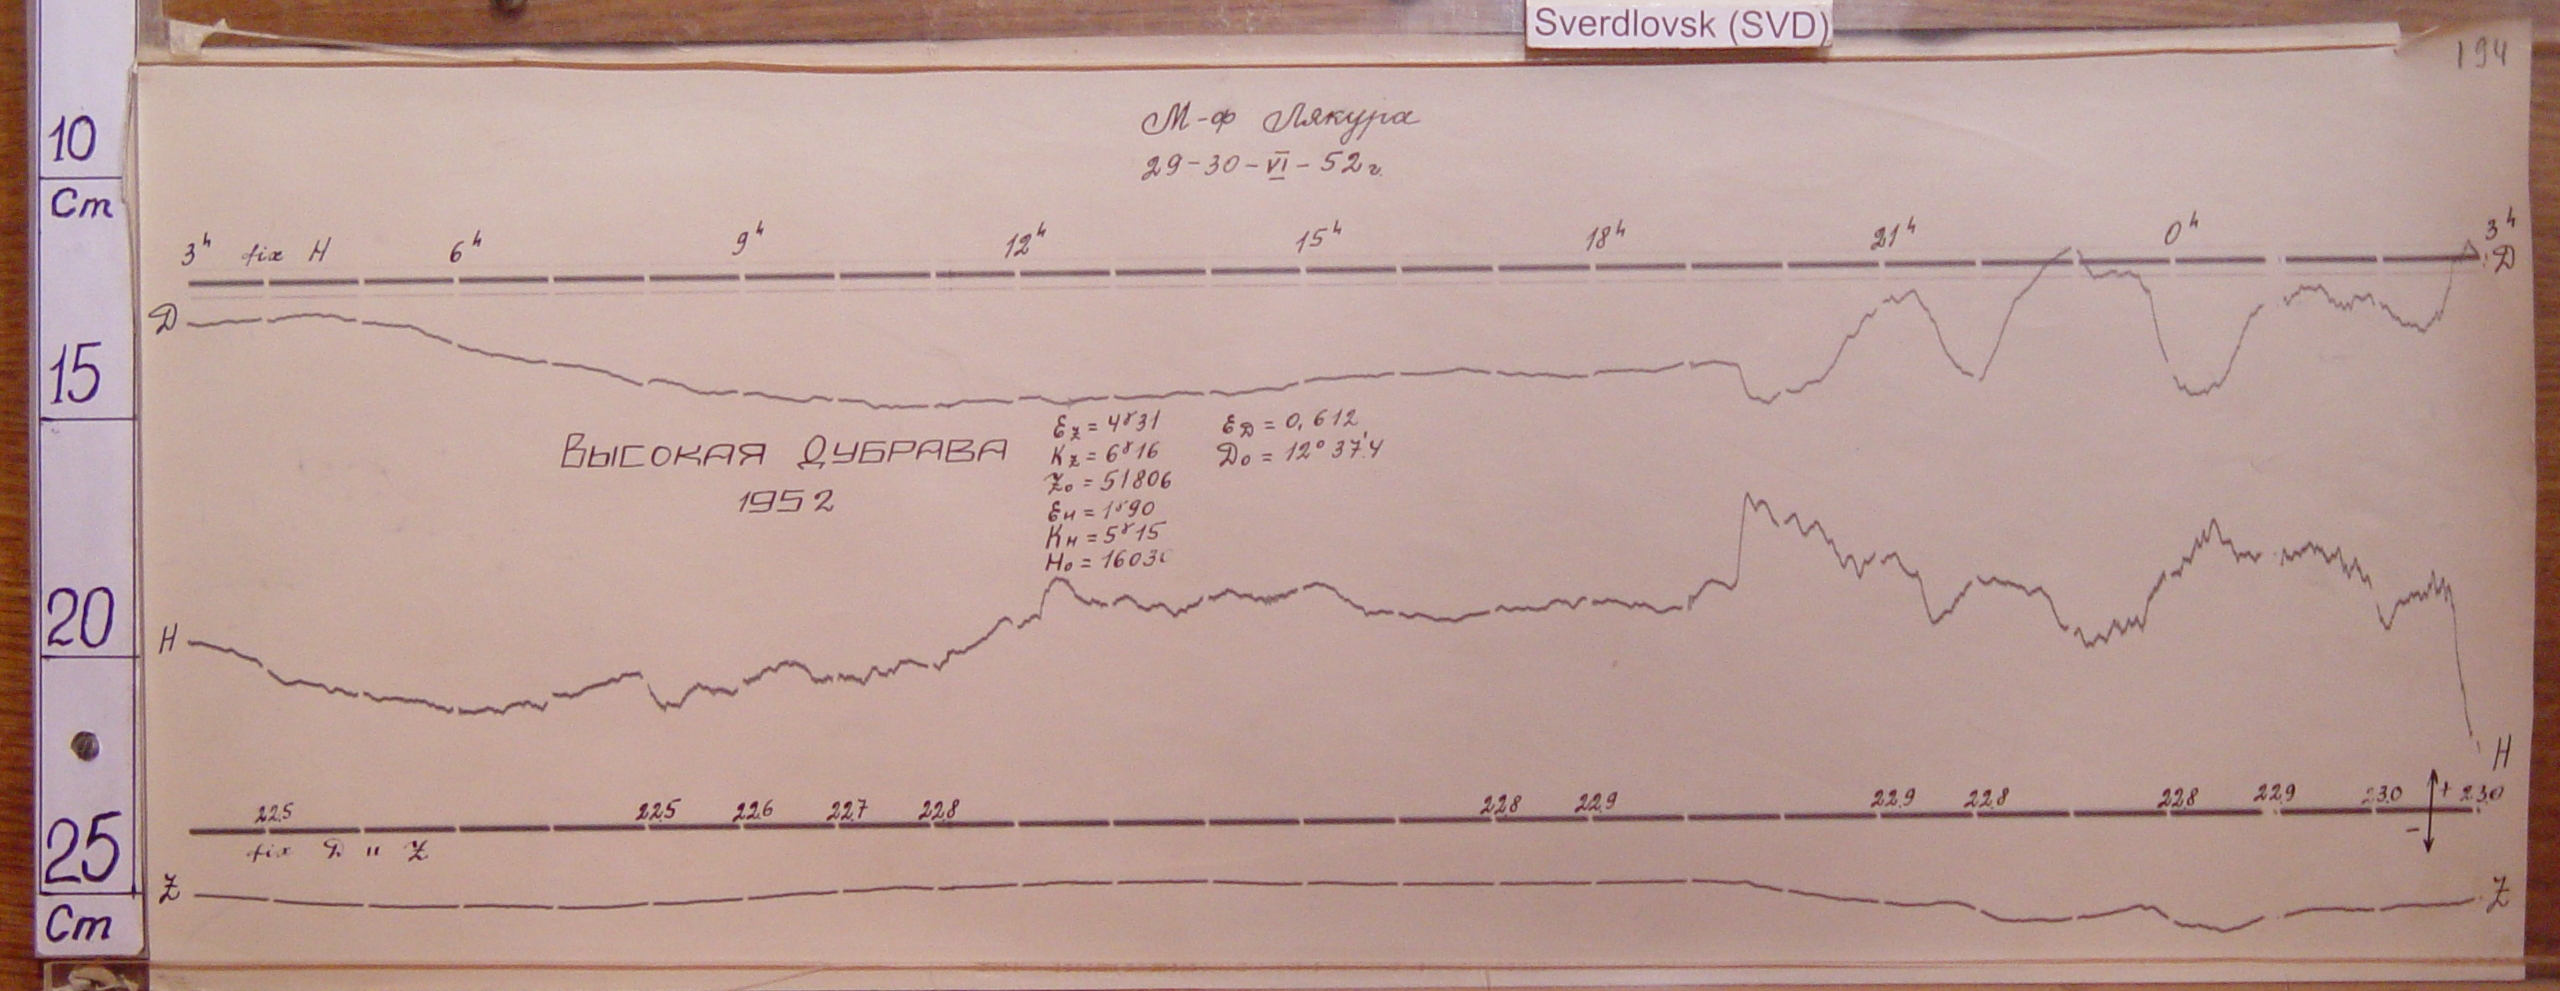 Sverdlovsk (SVD)
194
10
Cm
15
20
25
Cm
М-ф Лякура
29-30-VI-52г.
3ʰ fix H 6ʰ 9ʰ 12ʰ 15ʰ 18ʰ 21ʰ 0ʰ 3ʰ
D D
ВЫСОКАЯ ДУБРАВА
1952
εz = 4ɣ31 εD = 0,612
Kz = 6ɣ16 D₀ = 12° 37'.4
Z₀ = 51806
εH = 1ɣ90
KH = 5ɣ15
H H
225 225 226 227 228 228 229 229 228 228 229 230 + 230
fix D и Z -
Z Z